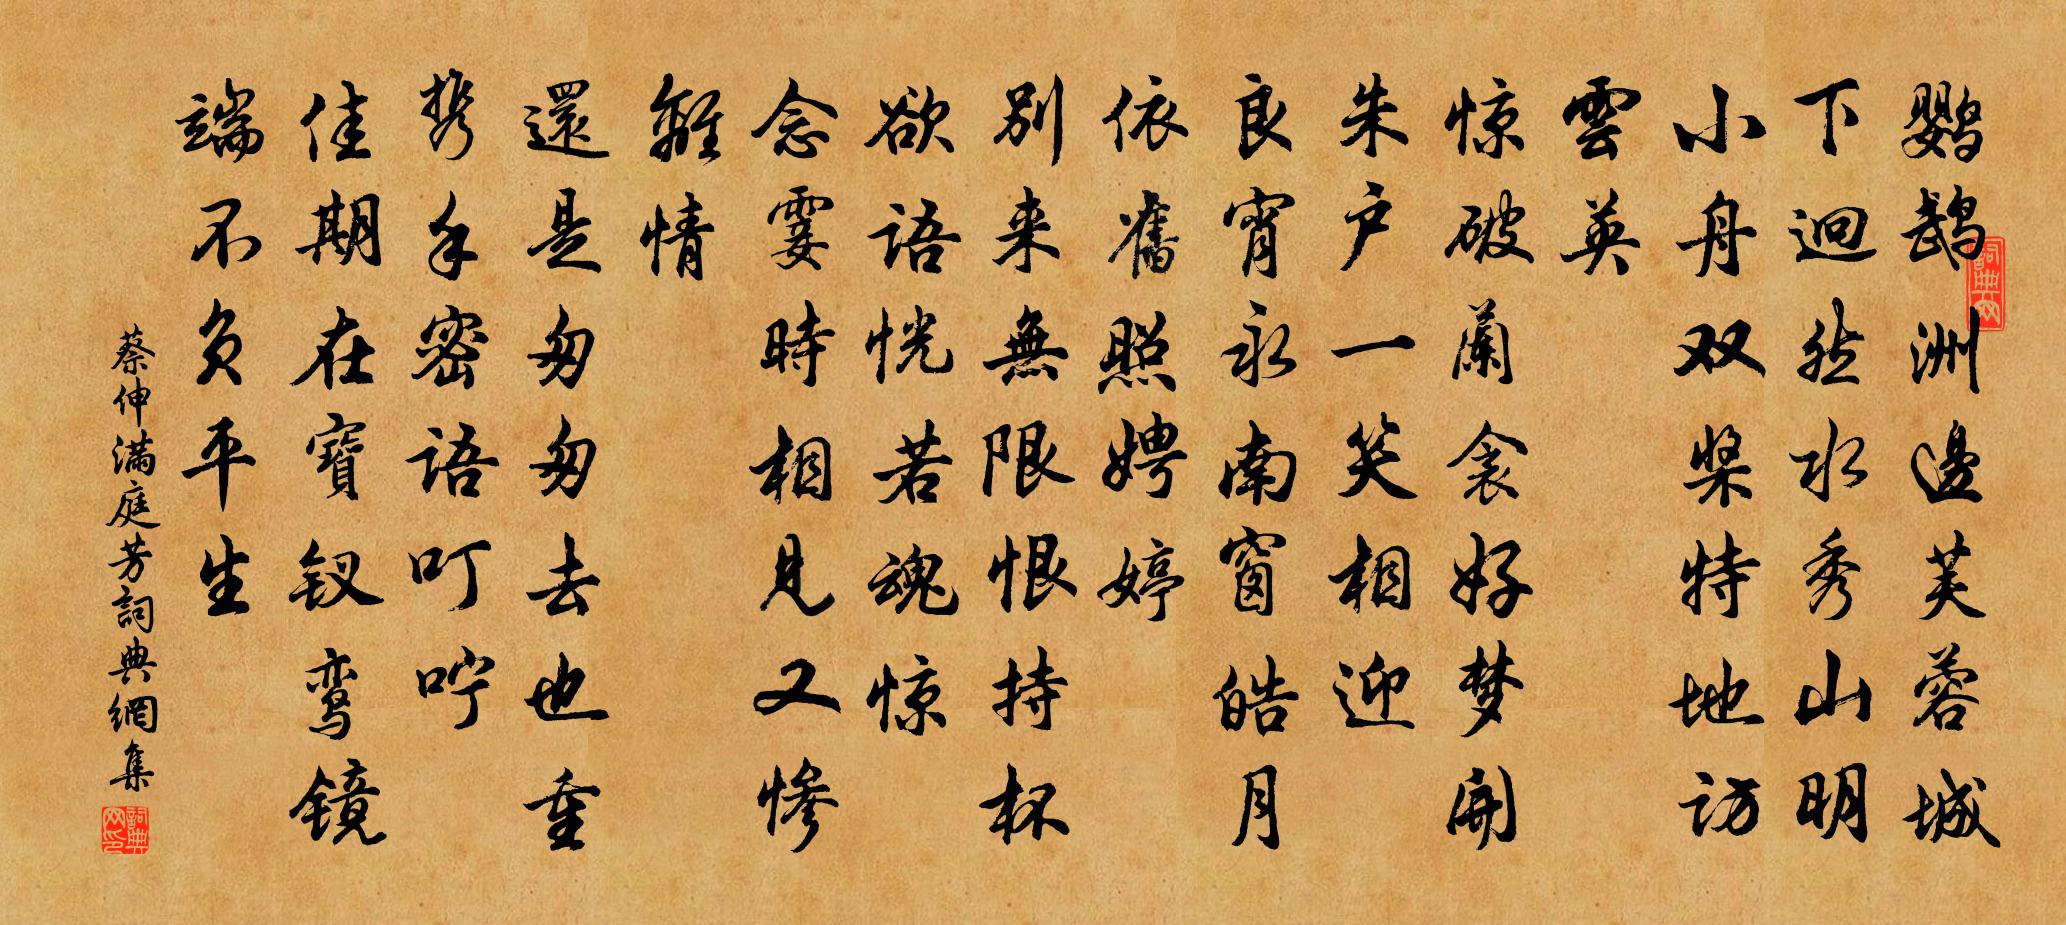 鹦鹉洲邊芙蓉城
下迴然水秀山明
小舟双桨特地访
雲英
惊破蘭衾好梦開
朱户一笑相迎
良宵永南窗皓月
依舊照娉婷
别来無限恨持杯
欲语恍若魂惊
念霎時相見又惨
離情
還是匆匆去也重
携手密语叮咛
佳期在寶钗鸾镜
端不负平生
蔡伸满庭芳詞典網集
詞典网
詞典网印